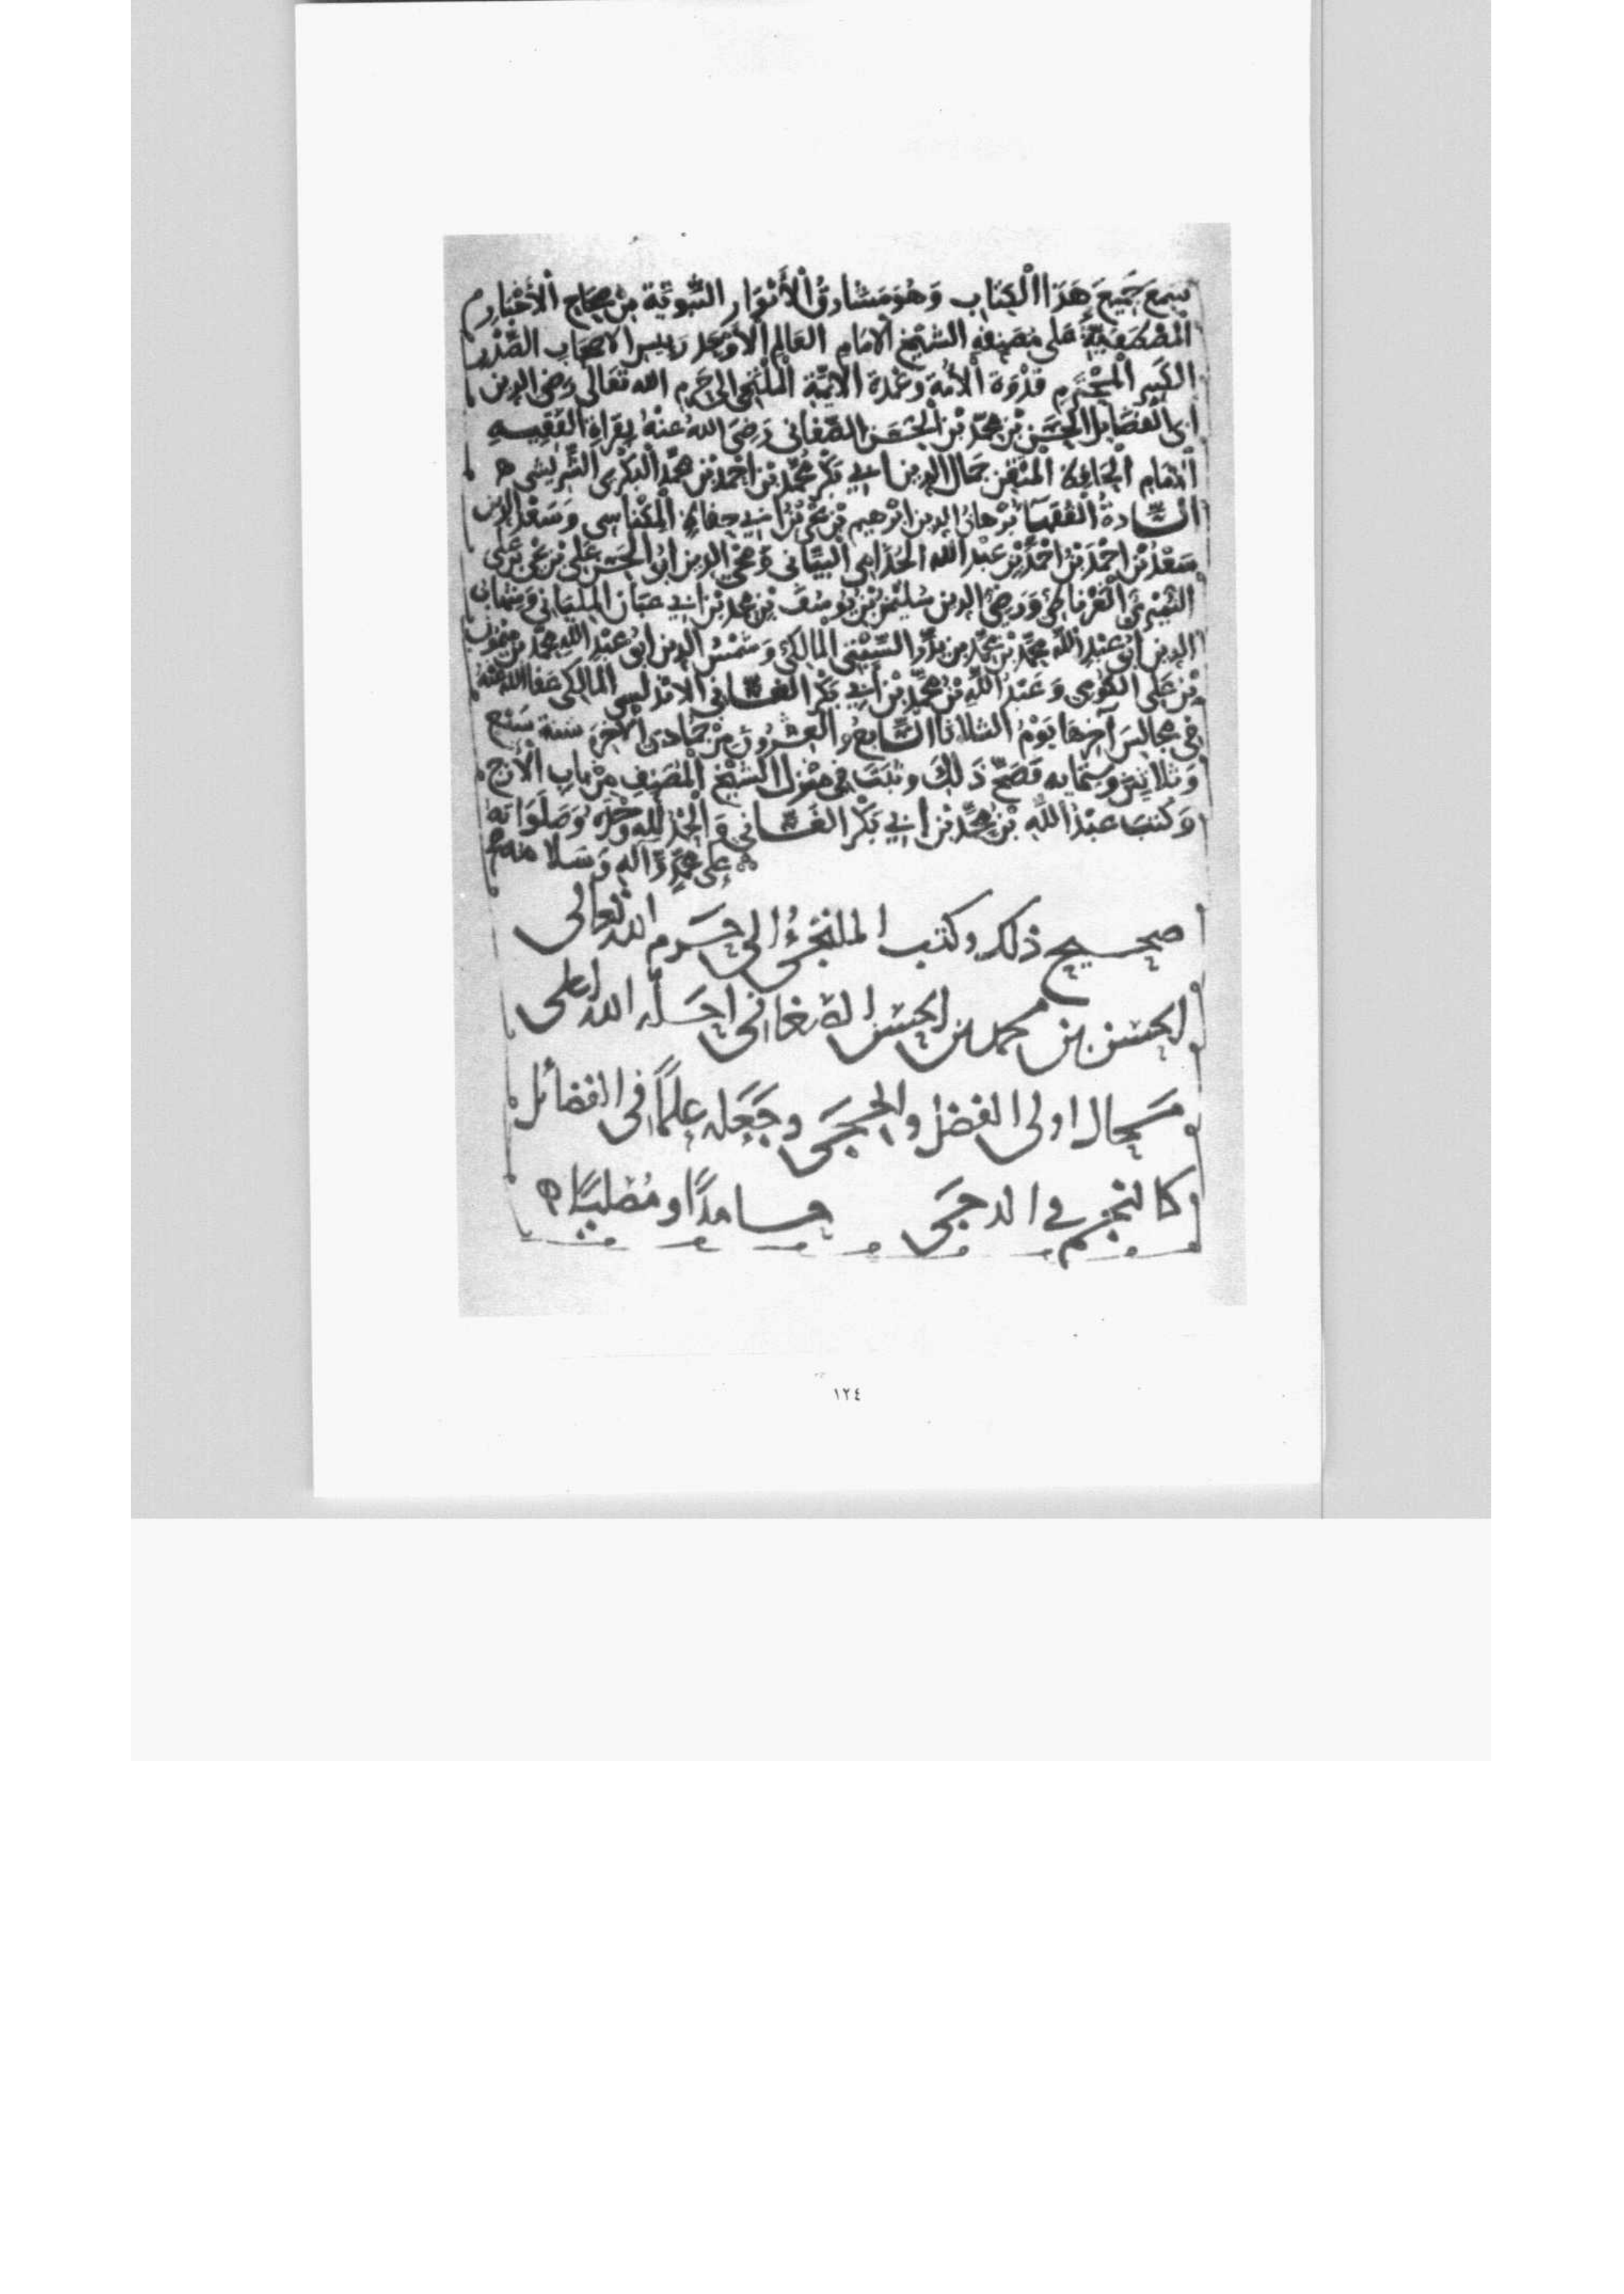 سَمِعَ جَمِيعَ هَذَا الْكِتَابِ وَهُوَ مَشَارِقُ الْأَنْوَارِ النَّبَوِيَّةِ مِنْ صِحَاحِ الْأَخْبَارِ
الْمُصْطَفَوِيَّةِ عَلَى مُصَنِّفِهِ الشَّيْخِ الْإِمَامِ الْعَالِمِ الْأَوْحَدِ رئيس الأصحاب الصَّدْرِ
الْكَبِيرِ الْمُحْتَرَمِ قُدْوَةِ الْأُمَّةِ وَعُمْدَةِ الْأَئِمَّةِ الْمُلْتَجِئِ إِلَى حَرَمِ اللهِ تَعَالَى رضي الدين
أبي الفضائل الْحَسَنِ بْنِ مُحَمَّدِ بْنِ الْحَسَنِ الصَّغَانِي رَضِيَ اللهُ عَنْهُ بِقِرَاءَةِ الْفَقِيهِ
الْإِمَامِ الْحَافِظِ الْمُتْقِنِ جَمَالِ الدِينِ أبي بَكْرٍ مُحَمَّدِ بْنِ أَحْمَدَ بْنِ مُحَمَّدٍ الْبَكْرِي الشَّرِيشِي
السَّادَةُ الْفُقَهَاءُ بُرْهَانُ الدِينِ ابْرَهِيم بْنُ يَحْيَى بْنِ أبي حفاظ الْمِكْنَاسِي وَسَعْدُ الدين
سَعْدُ بْنُ أَحْمَدَ بْنِ أَحْمَدَ بْنِ عَبْدِ اللهِ الْجُذَامِي الْبَيَّانِي وَمُحْيِي الدِينِ أَبُو الْحَسَنِ عَلِي بْنُ
الْغَرْنَاطِي وَرَضِيُّ الدِينِ سُلَيْمَنُ بْنُ يُوسُفَ بْنِ مُحَمَّدِ بْنِ أبي الْمِلْيَانِي
الدِينِ أَبُو عَبْدِ اللَّهِ مُحَمَّدُ بْنُ مُحَمَّدِ السَّبْتِي الْمَالِكِي وَشَمْسُ الدِينِ أَبُو عَبْدِ اللهِ مُحَمَّدُ بْنُ
بْنِ عَلِي الْكُومِي وَعَبْدُ اللَّهِ بْنُ مُحَمَّدِ بْنِ أبي بَكْرٍ الْغَسَّانِي الْأَنْدَلُسِي الْمَالِكِي عَفَا اللهُ عَنْهُ
فِي مَجَالِسَ آخِرُهَا يَوْمُ الثُّلَاثَا السَّابِعُ وَالْعِشْرُونَ مِنْ جُمَادَى الْآخِرَةِ سَنَةَ سَبْعٍ
وَثَلَاثِينَ وَسِتِّمَايَةٍ فَصَحَّ ذَلِكَ وَثَبَتَ فِي مَنْزِلِ الشَّيْخِ الْمُصَنِّفِ مِنْ بَابِ الْأَزَجِ
وَكَتَبَ عَبْدُ اللَّهِ بْنُ مُحَمَّدِ بْنِ أبي بَكْرٍ الْغَسَّانِي وَالْحَمْدُ لِلَّهِ وَحْدَهُ وَصَلَوَاتُهُ
عَلَى مُحَمَّدٍ وَآلِهِ وَسَلَامُهُ
صحيح ذلك وكتب الملتجئ إلى حرم الله تعالى
الحسن بن محمد بن الحسن الصغاني أحله الله أعلى
محال أولي الفضل والحجى وجعله علمًا في الفضائل
كالنجم في الدجى حامدًا ومصليًا
١٢٤